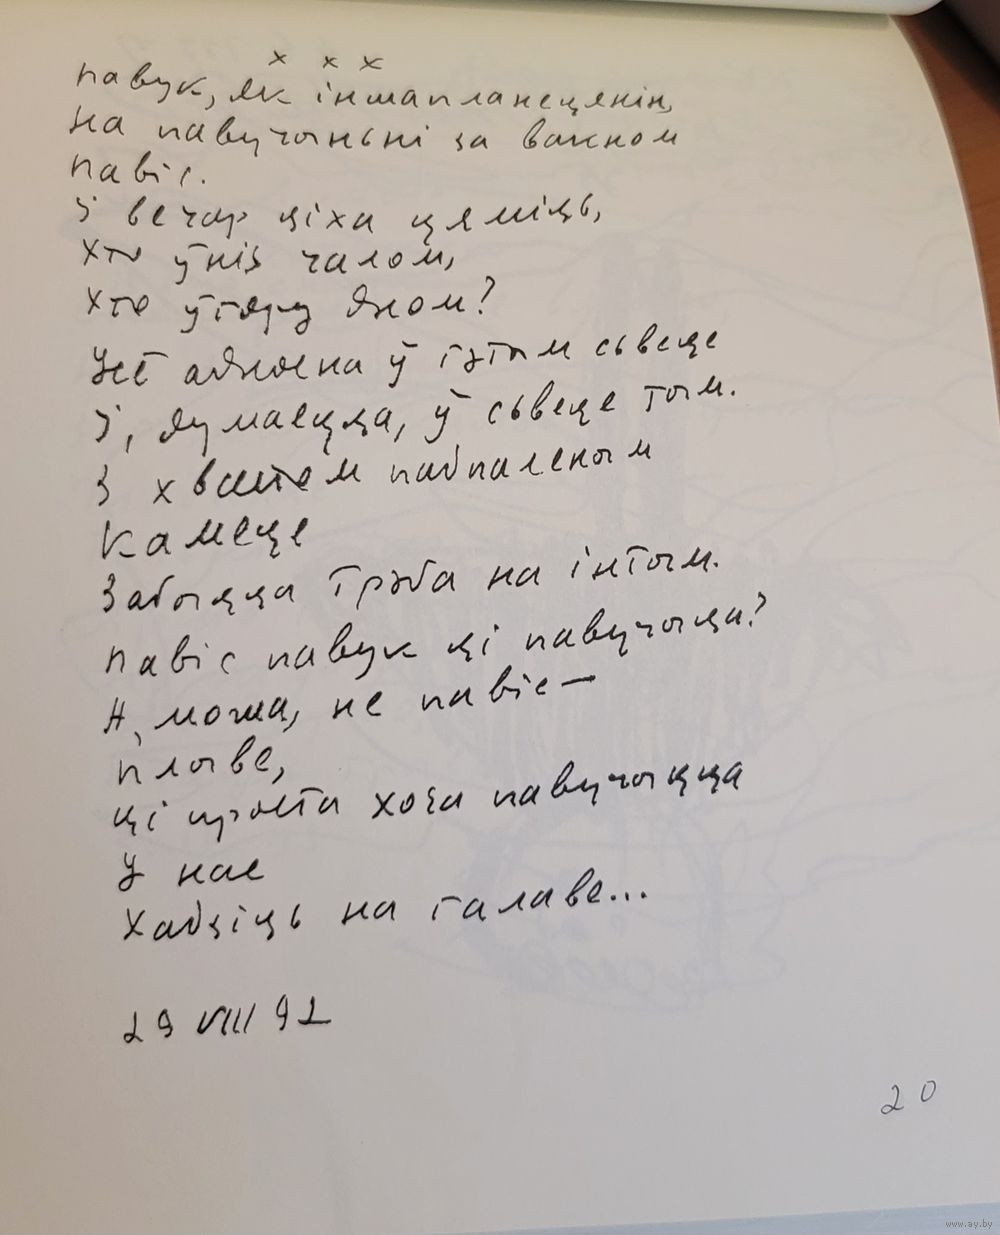 х х х
Павук, як іншапланецянін,
На павучыньні за вакном
Павіс.
І вечар ціха цяміць,
Хто ўніз чалом,
Хто ўгару дном?
Усё адносна ў гэтым сьвеце
І, думаецца, ў сьвеце тым.
З хвастом падпаленым
Камеце
Забыцца трэба на інтым.
Павіс павук ці павучыца?
А, можа, не павіс —
Плыве,
Ці проста хоча павучыцца
У нас
Хадзіць на галаве...
29 VIII 92
20
www.ay.by